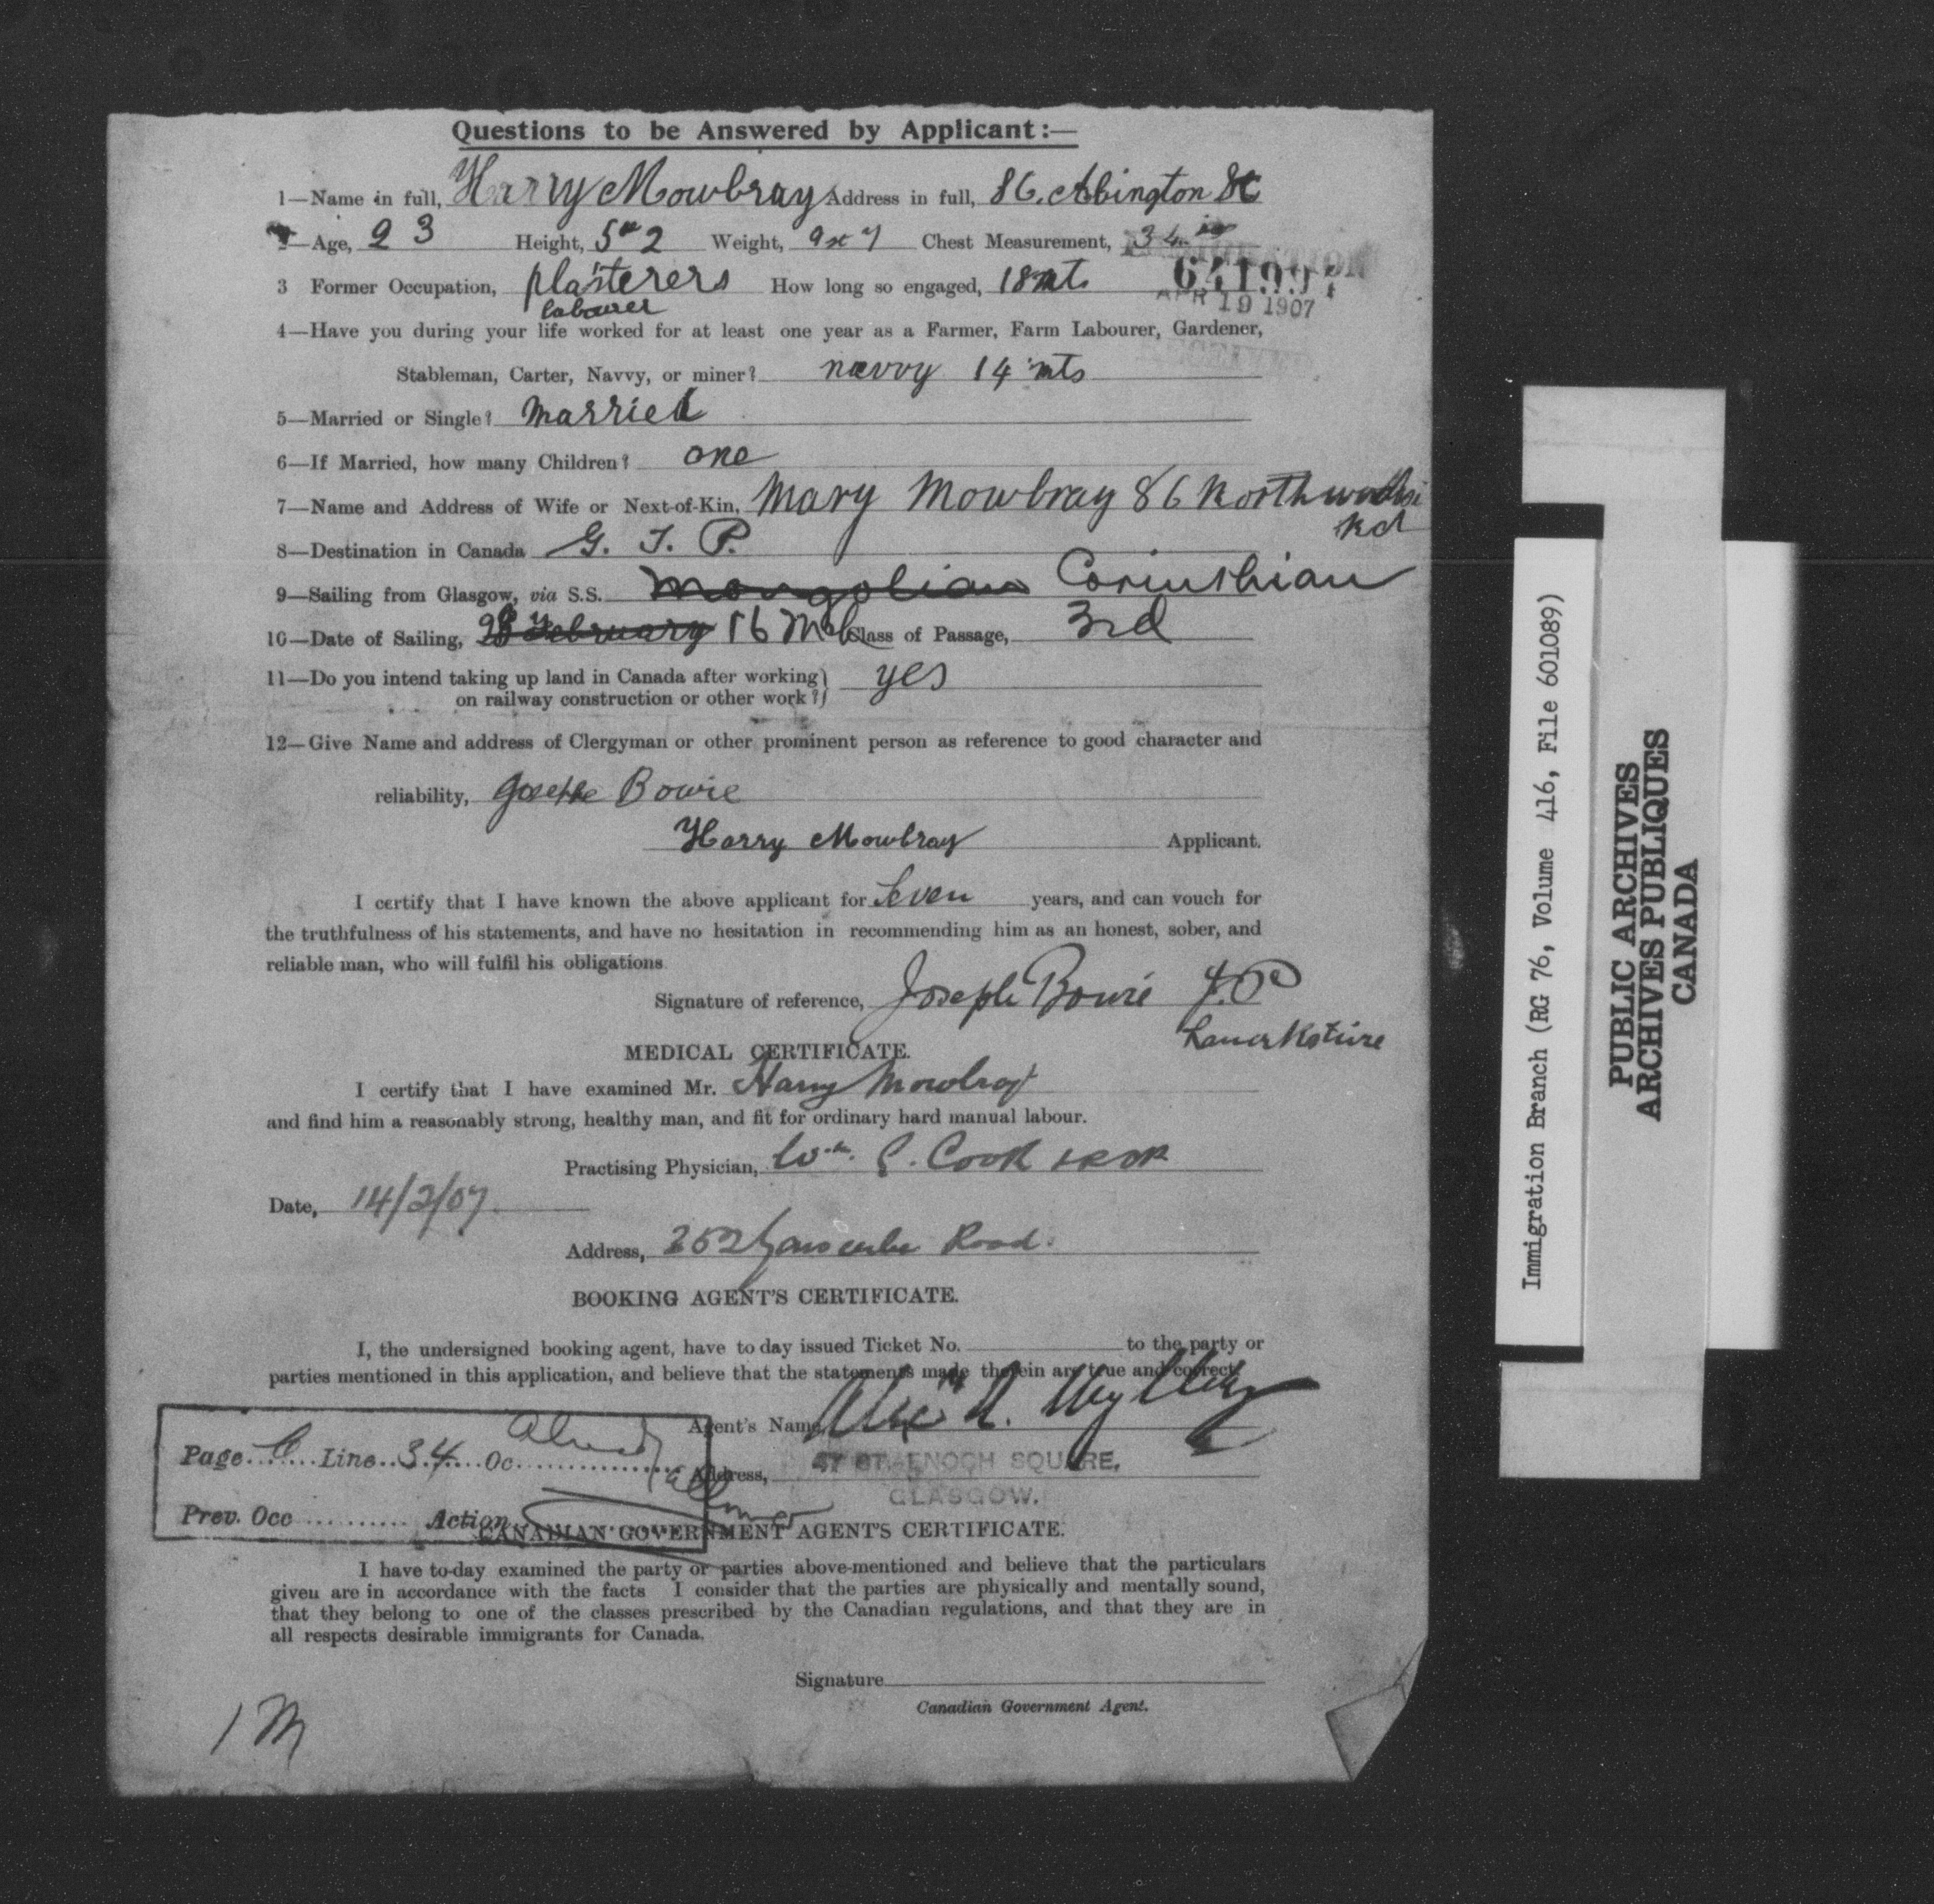 Questions to be Answered by Applicant:—
1—Name in full, Harry Mowbray Address in full, 86. Abington St
Age, 23 Height, 5" 2 Weight, 9st 7 Chest Measurement, 34 in
3 Former Occupation, plasterers How long so engaged, 18 mts
labourer
64199
APR 19 1907
4—Have you during your life worked for at least one year as a Farmer, Farm Labourer, Gardener,
Stableman, Carter, Navvy, or miner? navvy 14 mts
5—Married or Single? Married
6—If Married, how many Children? one
7—Name and Address of Wife or Next-of-Kin, Mary Mowbray 86
Rd
8—Destination in Canada G. T. P.
9—Sailing from Glasgow, via S.S. Mongolian Corinthian
10—Date of Sailing, February 16 Mch Class of Passage, 3rd
11—Do you intend taking up land in Canada after working yes
on railway construction or other work?
12—Give Name and address of Clergyman or other prominent person as reference to good character and
reliability, Bowie
Harry Mowbray Applicant.
I certify that I have known the above applicant for Seven years, and can vouch for
the truthfulness of his statements, and have no hesitation in recommending him as an honest, sober, and
reliable man, who will fulfil his obligations
Signature of reference, Joseph Bowie J.P
Lanarkshire
MEDICAL CERTIFICATE.
I certify that I have examined Mr. Harry Mowbray
and find him a reasonably strong, healthy man, and fit for ordinary hard manual labour.
Practising Physician, Wm. Cook
Date, 14/2/07.
Address, 252 Road.
BOOKING AGENT'S CERTIFICATE.
I, the undersigned booking agent, have to day issued Ticket No. to the party or
parties mentioned in this application, and believe that the statements made therein are true and correct.
Agent's Name
Page Line 34 Oc
Address, 47 ST. ENOCH SQUARE,
GLASGOW.
Prev. Occ Action
CANADIAN GOVERNMENT AGENT'S CERTIFICATE.
I have to-day examined the party or parties above-mentioned and believe that the particulars
given are in accordance with the facts I consider that the parties are physically and mentally sound,
that they belong to one of the classes prescribed by the Canadian regulations, and that they are in
all respects desirable immigrants for Canada.
Signature
Canadian Government Agent.
1 M
Immigration Branch (RG 76, Volume 416, File 601089)
PUBLIC ARCHIVES
ARCHIVES PUBLIQUES
CANADA